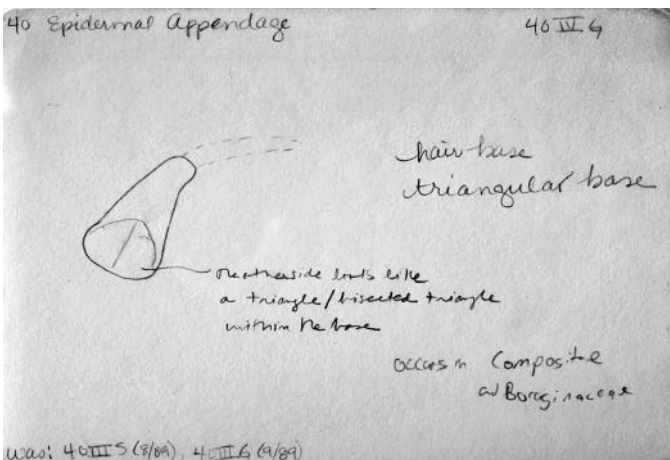 40 Epidermal Appendage
40 IV G
hair base
triangular base
on other side looks like
a triangle/bisected triangle
within the base
occurs in Compositae
and Boraginaceae
was: 40 III 5 (8/89), 40 III 6 (9/89)